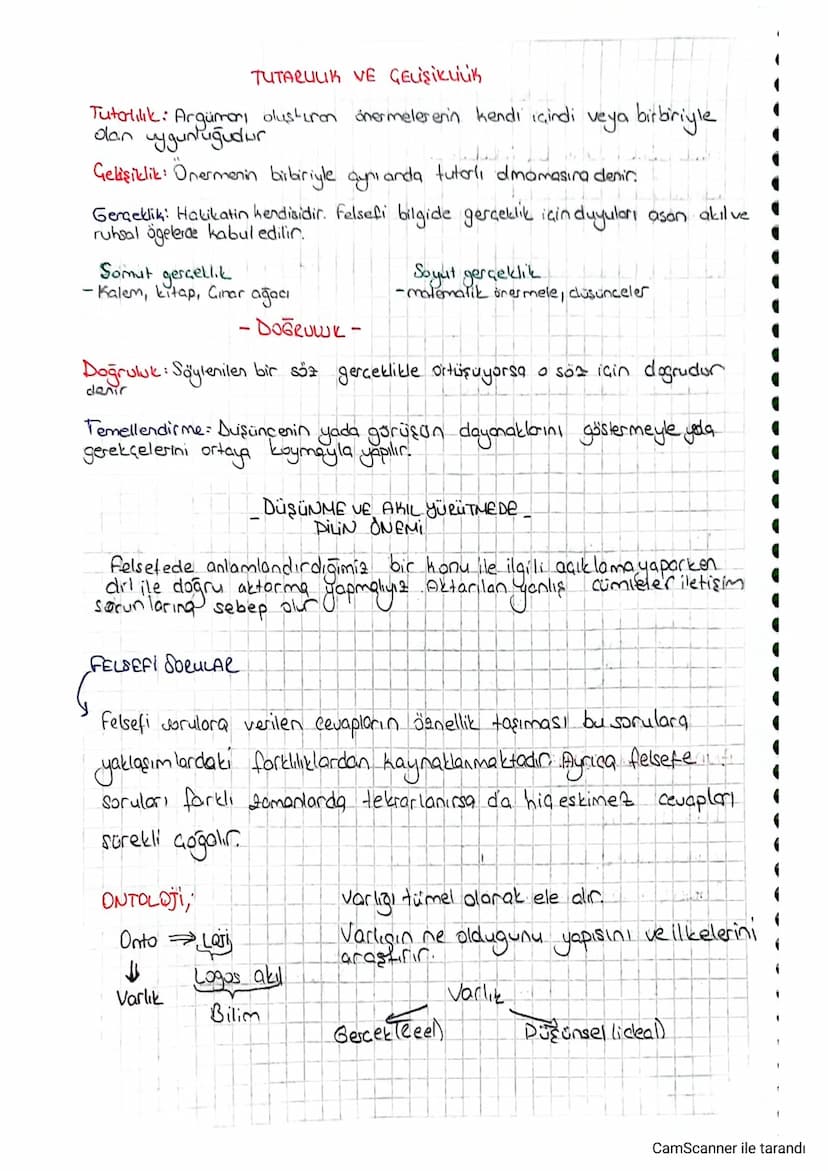 TUTARLILIK VE ÇELİŞİKLİLİK
Tutarlılık: Argümanı oluşturan önermelererin kendi içindi veya birbiriyle
olan uygunluğudur
Çelişiklik: Önermenin birbiriyle aynı anda tutarlı olmamasına denir.
Gerçeklik: Hakikatin kendisidir. Felsefi bilgide gerçeklik için duyuları aşan akıl ve
ruhsal ögelerde kabul edilir.
Somut gerçeklik Soyut gerçeklik
- Kalem, kitap, Çınar ağacı - matematik önermele, düşünceler
- DOĞRULUK -
Doğruluk: Söylenilen bir söz gerçeklikle örtüşüyorsa o söz için doğrudur
denir
Temellendirme: Düşüncenin yada görüşün dayanaklarını göstermeyle yada
gerekçelerini ortaya koymayla yapılır.
_ DÜŞÜNME VE AKIL YÜRÜTMEDE _
DİLİN ÖNEMİ
Felsefede anlamlandırdığımız bir konu ile ilgili açıklama yaparken
dil ile doğru aktarma yapmalıyız. Aktarılan yanlış cümleler iletişim
sorunlarına sebep olur
FELSEFİ SORULAR
Felsefi sorulara verilen cevapların öznellik taşıması bu sorulara
yaklaşımlardaki farklılıklardan kaynaklanmaktadır. Ayrıca felsefe
soruları farklı zamanlarda tekrarlanırsa da hiç eskimez cevapları
sürekli çoğalır.
ONTOLOJİ; Varlığı tümel olarak ele alır.
Onto ⇒ Loji Varlığın ne olduğunu yapısını ve ilkelerini
araştırır.
⇓ Logos akıl
Varlık Bilim Varlık
Gerçek (Reel) Düşünsel (ideal)
CamScanner ile tarandı